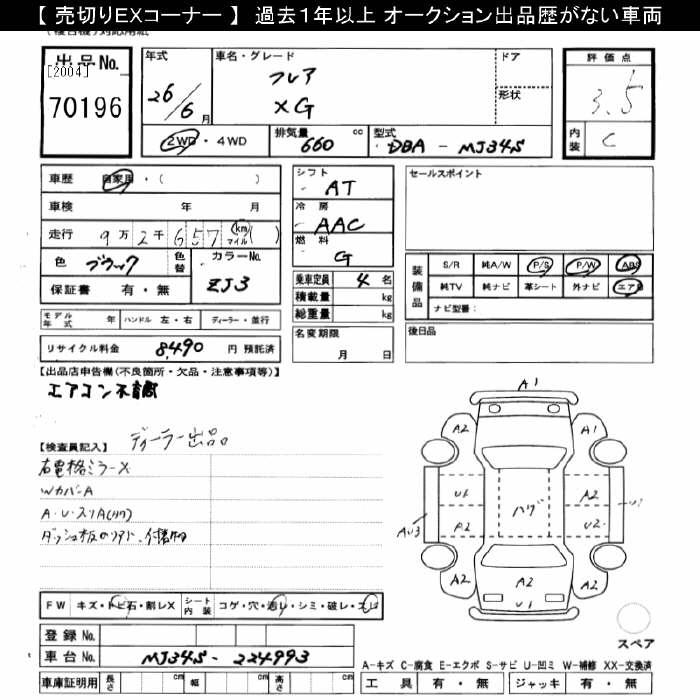 【 売切りEXコーナー 】 過去１年以上 オークション出品歴がない車両
出品No.
[2004]
70196
年式
26/6月
車名・グレード
フレア
XG
ドア
形状
評価点
3.5
内装
C
2WD・4WD
排気量
660 cc
型式
DBA - MJ34S
車歴 自家用・( )
車検 年 月
走行 9万2千657(km マイル)( )
色 ブラック
色替
カラーNo.
ZJ3
保証書 有・無
モデル年式 年
ハンドル 左・右
ディーラー・並行
リサイクル料金 8,490 円 預託済
シフト
AT
冷房
AAC
燃料
G
乗車定員 4 名
積載量 kg
総重量 kg
名変期限
月 日
セールスポイント
装備品
S/R 純A/W P/S P/W ABS
純TV 純ナビ 革シート 外ナビ エアB
ナビ型番:
後日品
【出品店申告欄(不良箇所・欠品・注意事項等)】
エアコン不良
【検査員記入】
ディーラー出品
右電格ミラーX
WカバーA
A・U・スリ
FW キズ・トビ石・割レX
シート内装 コゲ・穴・汚レ・シミ・破レ・スレ
登録No.
車台No. MJ34S - 224993
車庫証明用 長さ cm 幅 cm 高さ cm
A1
A2 A1
U1 A2
ハゲ
AU3 P2 U2
A2 A2 A2
U1
スペア
A-キズ C-腐食 E-エクボ S-サビ U-凹ミ W-補修 XX-交換済
工具 有・無 ジャッキ 有・無